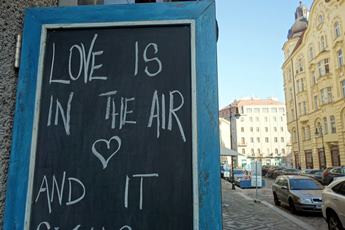 LOVE IS
IN THE AIR
AND IT